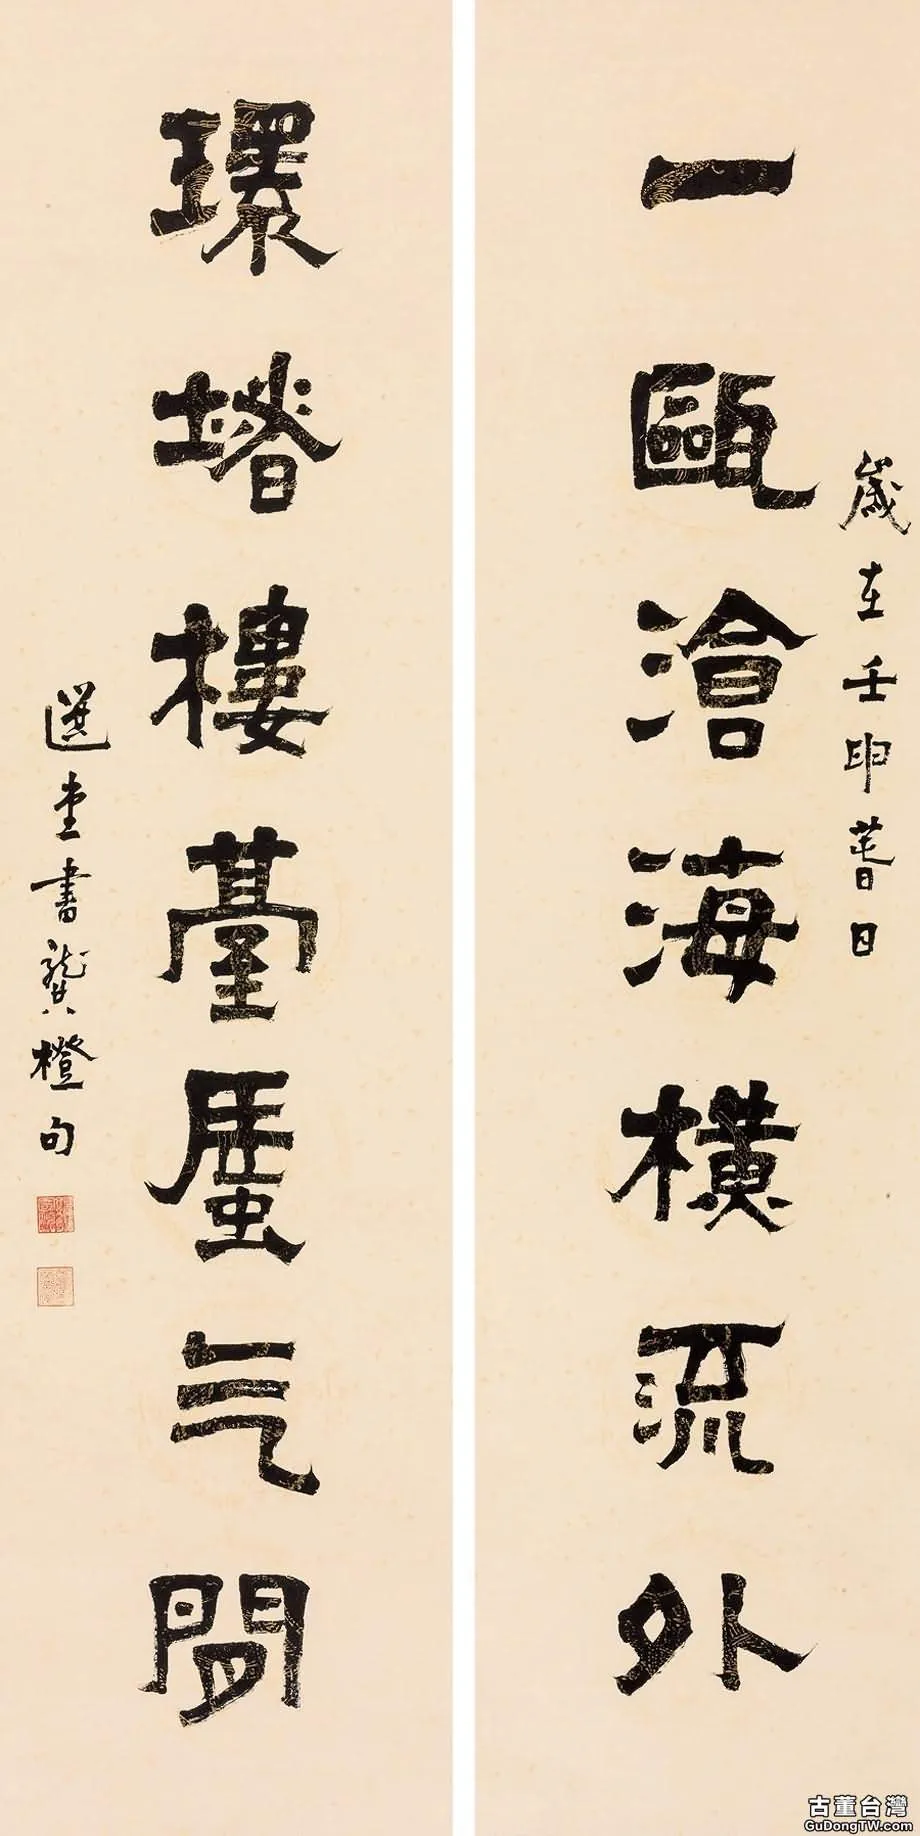 一甌滄海橫流外
歲在壬申萅日
環堵樓臺蜃气閒
選堂書龔橙句
古董台灣
GuDongTW.com